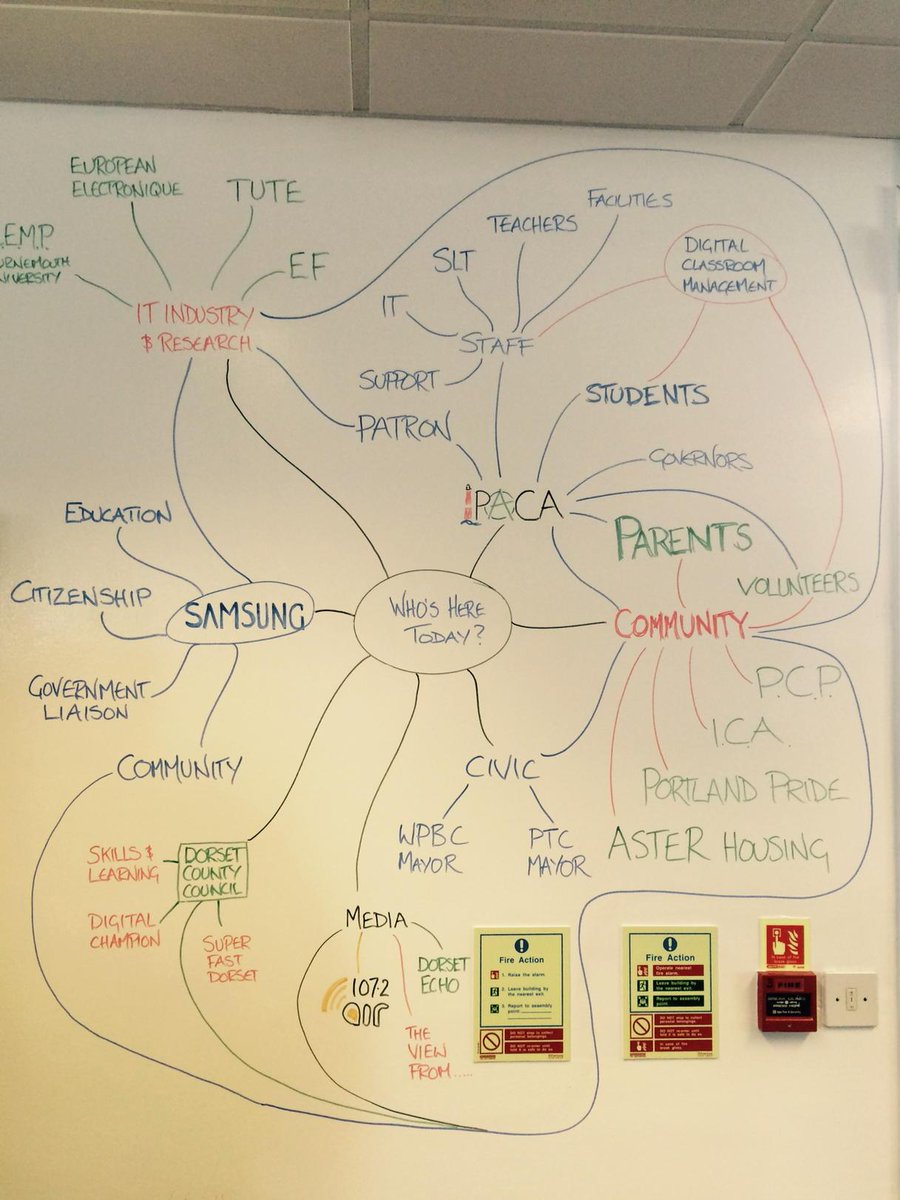 EUROPEAN
ELECTRONIQUE
TUTE
.E.M.P.
URNEMOUTH
NIVERSITY
EF
IT INDUSTRY
& RESEARCH
FACILITIES
TEACHERS
SLT
IT
STAFF
SUPPORT
PATRON
DIGITAL
CLASSROOM
MANAGEMENT
STUDENTS
GOVERNORS
iPACA
PARENTS
VOLUNTEERS
COMMUNITY
EDUCATION
CITIZENSHIP
SAMSUNG
GOVERNMENT
LIAISON
COMMUNITY
WHO'S HERE
TODAY?
P.C.P.
I.C.A.
PORTLAND PRIDE
ASTER HOUSING
CIVIC
WPBC
MAYOR
PTC
MAYOR
SKILLS &
LEARNING
DORSET
COUNTY
COUNCIL
DIGITAL
CHAMPION
SUPER
FAST
DORSET
MEDIA
107.2
air
DORSET
ECHO
THE
VIEW
FROM.....
Fire Action
1. Raise the alarm.
2. Leave building by
the nearest exit.
3. Report to assembly
point
DO NOT stop to collect
personal belongings
DO NOT re-enter until
told it is safe to do so
Fire Action
Operate nearest
fire alarm
Leave building by
the nearest exit
Report to assembly
point
DO NOT stop to collect
personal belongings
DO NOT re-enter until
told it is safe to do so
In case of fire
break glass
In case of fire
break glass
FIRE